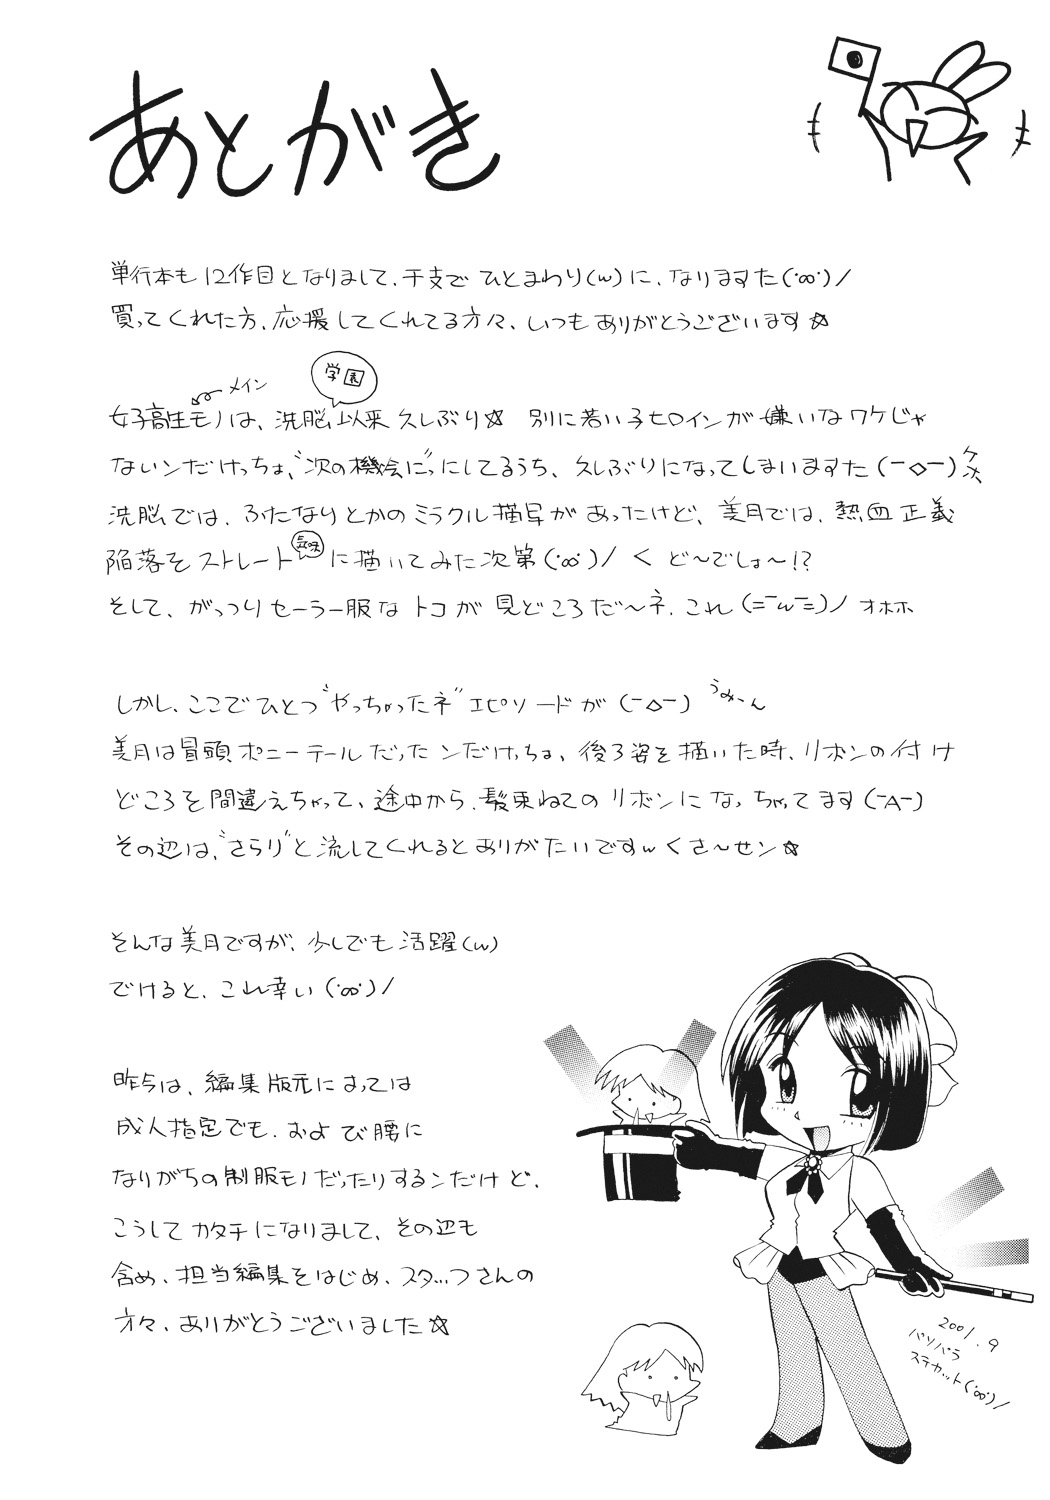 あとがき
単行本も12作目となりまして、干支でひとまわり(w)に、なりますた(･∞･)/
買ってくれた方、応援してくれてる方々、いつもありがとうございます☆
メイン
学園
女子高生モノは、洗脳以来久しぶり☆ 別に若い子ヒロインが嫌いなワケじゃ
ないンだけっちょ、"次の機会に"にしてるうち、久しぶりになってしまいますた(ー◇ー)
洗脳では、ふたなりとかのミラクル描写があったけど、美月では、熱血正義
陥落をストレート気味に描いてみた次第(･∞･)/ く ど〜でしょ〜!?
そして、がっつりセーラー服なトコが見どころだ〜ネ、これ(=ーwー=)ノ オホホ
しかし、ここでひとつ"やっちゃったネ"エピソードが(ー◇ー) うみーん
美月は冒頭ポニーテールだったンだけっちょ、後ろ姿を描いた時、リボンの付け
どころを間違えちゃって、途中から、髪束ねてのリボンになっちゃってます(ーAー)
その辺は、"さらり"と流してくれるとありがたいですw くさ〜せン☆
そんな美月ですが、少しでも活躍(w)
でけると、これ幸い(･∞･)/
昨今は、編集版元によっては
成人指定でも、および腰に
なりがちの制服モノだったりするンだけど、
こうしてカタチになりまして、その辺も
含め、担当編集をはじめ、スタッフさんの
方々、ありがとうございました☆
2001.9
パソパラ
ステカット(･∞･)/